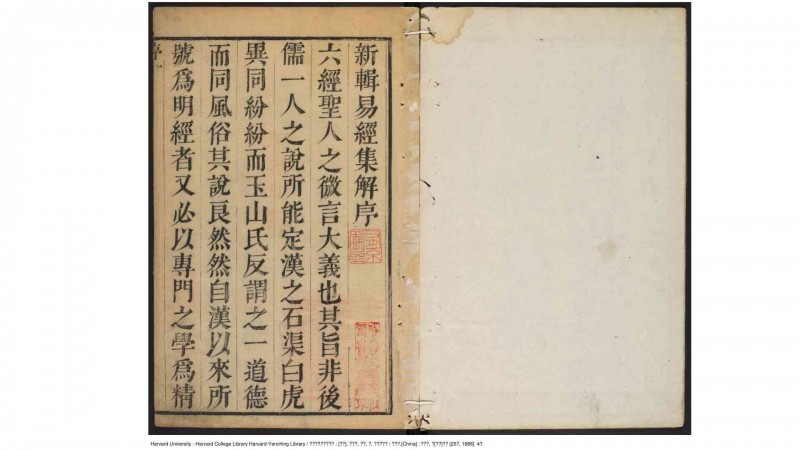 新輯易經集解序
六經聖人之微言大義也其旨非後
儒一人之說所能定漢之石渠白虎
異同紛紛而玉山氏反謂之一道德
而同風俗其說良然然自漢以來所
號爲明經者又必以專門之學爲精
序
Harvard University - Harvard College Library Harvard-Yenching Library / ????????? : [??], ???, ??, ?, ????? / ???,[China] : ???, ?[??]?? [257, 1686] 4?.